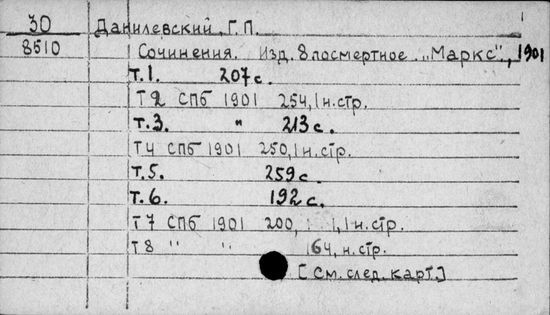 30 Данилевский, Г. П.
8510 Сочинения. Изд. 8 посмертное. „Маркс", 1901
т. 1. 207 с.
Т 2 СПб 1901 254, 1 н. стр.
т. 3. " 213 с.
Т 4 СПб 1901 250, 1 н. стр.
т. 5. 259 с.
т. 6. 192 с.
Т 7 СПб 1901 200, 1, 1 н. стр.
Т 8 " " 164, н. стр.
[См. след. карт.]